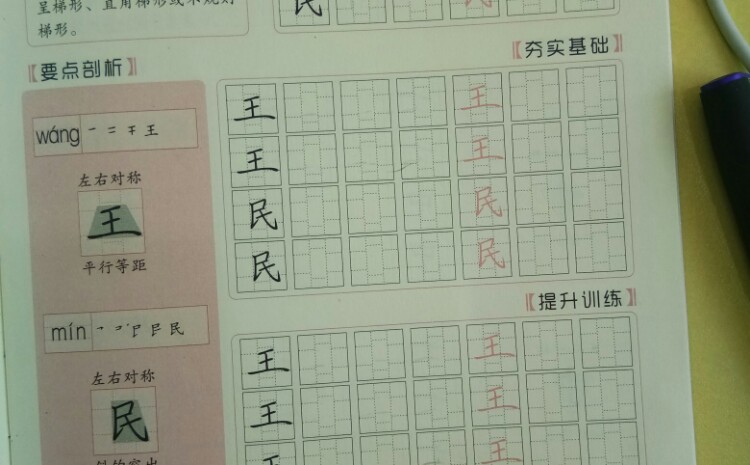 呈梯形、直角梯形或不规则
梯形。
民 民
【要点剖析】
【夯实基础】
wáng 一 二 干 王
左右对称
王
平行等距
王 王
王 王
民 民
民 民
【提升训练】
mín
民
左右对称
民
王 王
王 王